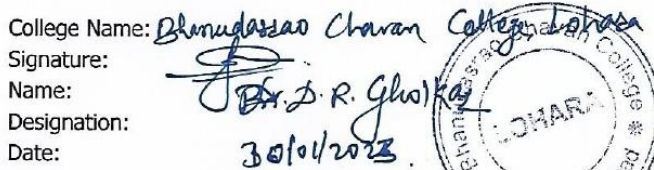 College Name: Bhanudasrao Chavan College, Lohara
Signature:
Name: Dr. D. R. Gholkar
Designation:
Date: 30/01/2023.
Bhanudasrao Chavan College *
LOHARA